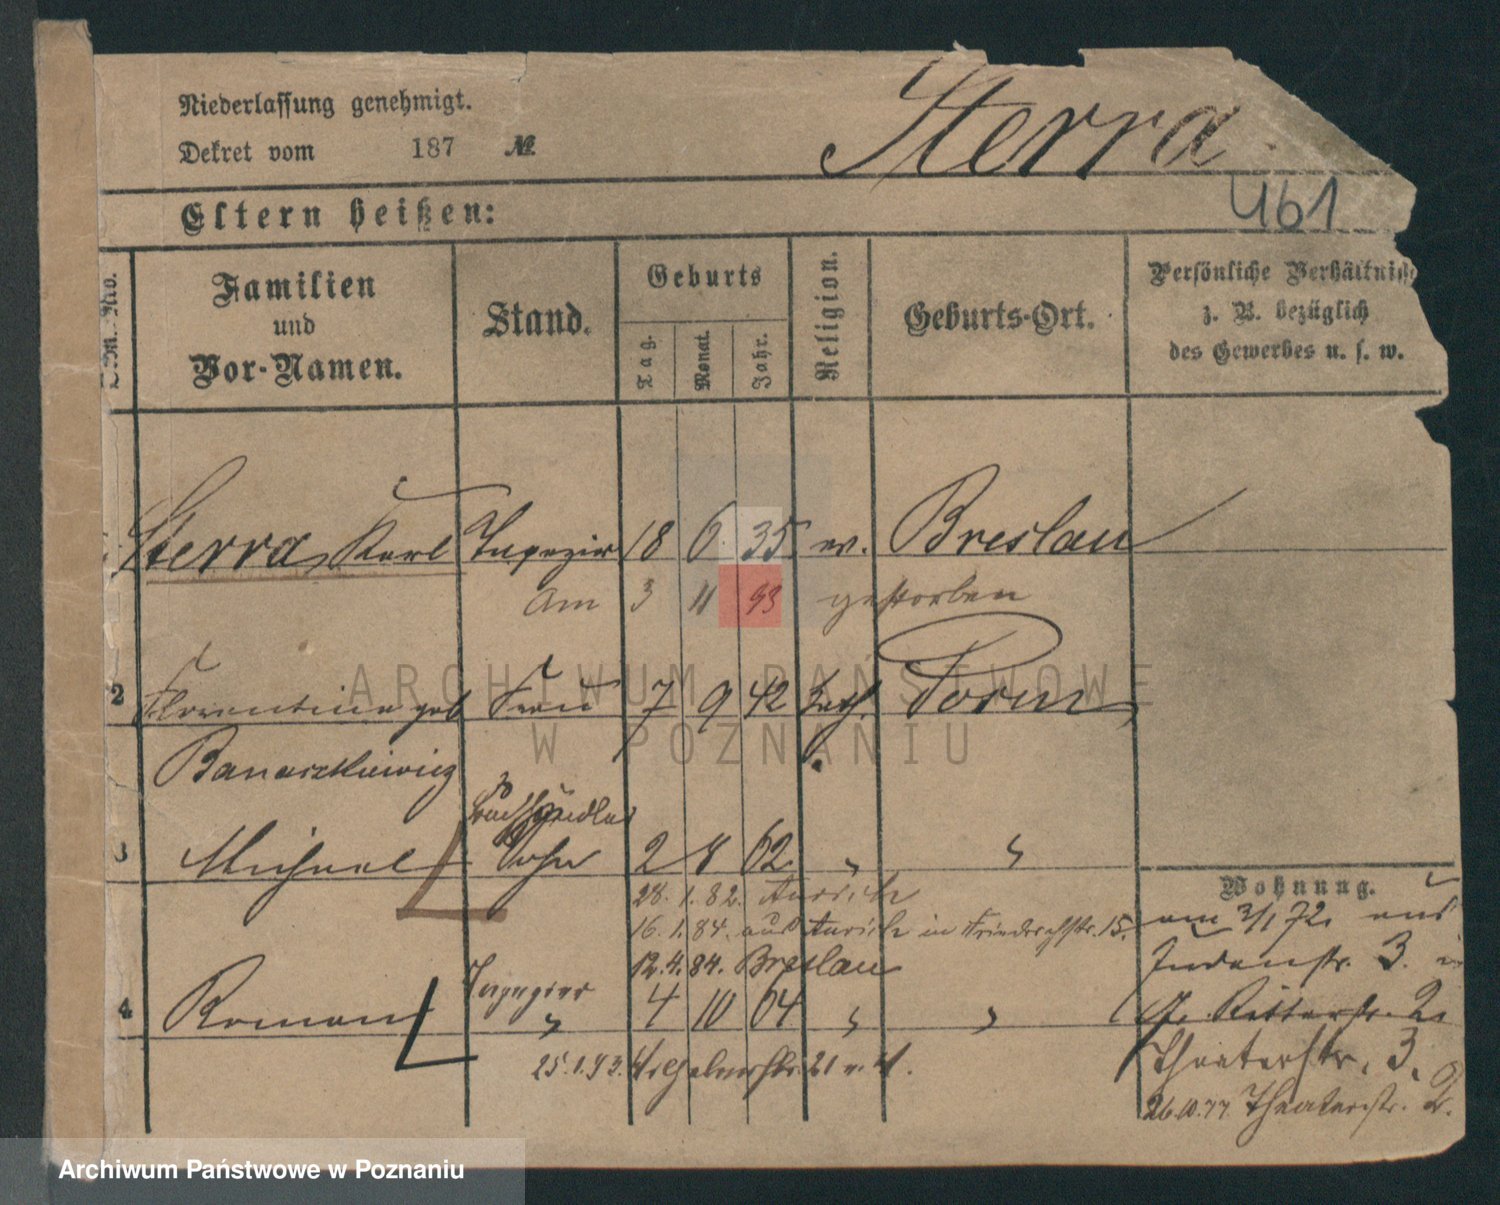 Niederlassung genehmigt.
Dekret vom 187 №
Sterra
461
Eltern heißen:
Familien und Vor-Namen.
Stand.
Geburts
Tag.
Monat.
Jahr.
Religion.
Geburts-Ort.
Persönliche Verhältnisse
z. B. bezüglich
des Gewerbes u. s. w.
Sterra, Karl Tapezier 18 6 35 ev. Breslau
Am 3 11 93 gestorben
2 Florentine geb Frau 7 9 42 kath. Posen
Banaszkiewicz
Buchhändler
3 Michael Sohn 2 8 62 " "
28.1.82. Aurich
16.1.84. aus Aurich in Friedrichstr. 15.
12.4.84. Breslau
Tapezier
4 Roman " 4 10 64 " "
25.1.93. Wilhelmstr. 21 v. 4.
Wohnung.
am 3/1 72. aus
Judenstr. 3.
Gr. Ritterstr. 2.
Theaterstr. 3.
26.10.77. Theaterstr. 2.
ARCHIWUM PAŃSTWOWE
W POZNANIU
Archiwum Państwowe w Poznaniu